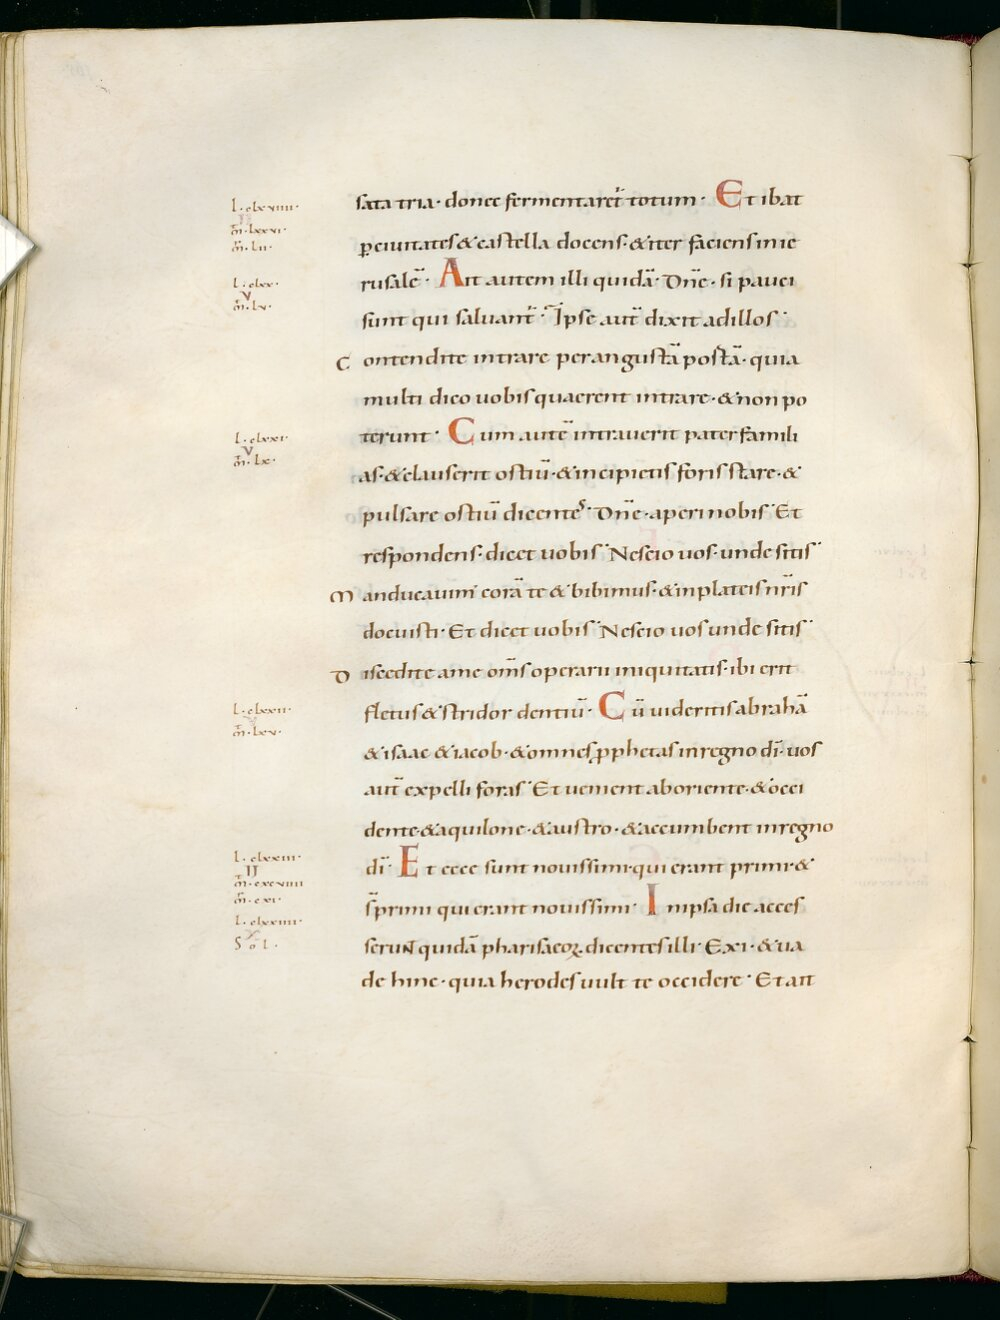 L·clxviiii·
m̄·lxxvi·
m̄·lii·
L·clxx·
V
m̄·lv·
L·clxxi·
V
m̄·lx·
L·clxxii·
m̄·lxv·
L·clxxiii·
II
m̄·cxcviiii
m̄·cxi·
L·clxxiiii·
X
S o L·
sata tria· donec fermentaret̄ totum· Et ibat
ꝑciuitates&castella docens·&iter faciensinie
rusalē· Ait autem illi quidā· Dn̄e· si pauci
sunt qui saluant̄· Ipse aut̄ dixit adillos·
C ontendite intrare perangustā portā· quia
multi dico uobisquaerent intrare·&non po
terunt· Cum autē intrauerit paterfamili
as·&clauserit ostiū·&incipietis foris stare·&
pulsare ostiū dicentes· Dn̄e·aperinobis· Et
respondens·dicet uobis· Nescio uos·undesitis·
M anducauim' corā te &bibimus·&inplateisnr̄is
docuisti· Et dicet uobis· Nescio uosunde sitis·
D iscedite ame om̄s operarii iniquitatis·ibi erit
fletus&stridor dentiū· Cū uideritisabrahā
&isaac &iacob·&omnes ꝓphetasinregno dī·uos
aut̄ expelli foras· Et uenient aboriente·&occi
dente·&aquilone·&austro·&accumbent inregno
dī· Et ecce sunt nouissimi·qui erant primi·&
s̄primi quierant nouissimi· Inipsa die acces
serunt quidā pharisaeoꝝ dicentesilli· Exi·&ua
de hinc·quia herodesuult te occidere· Etait